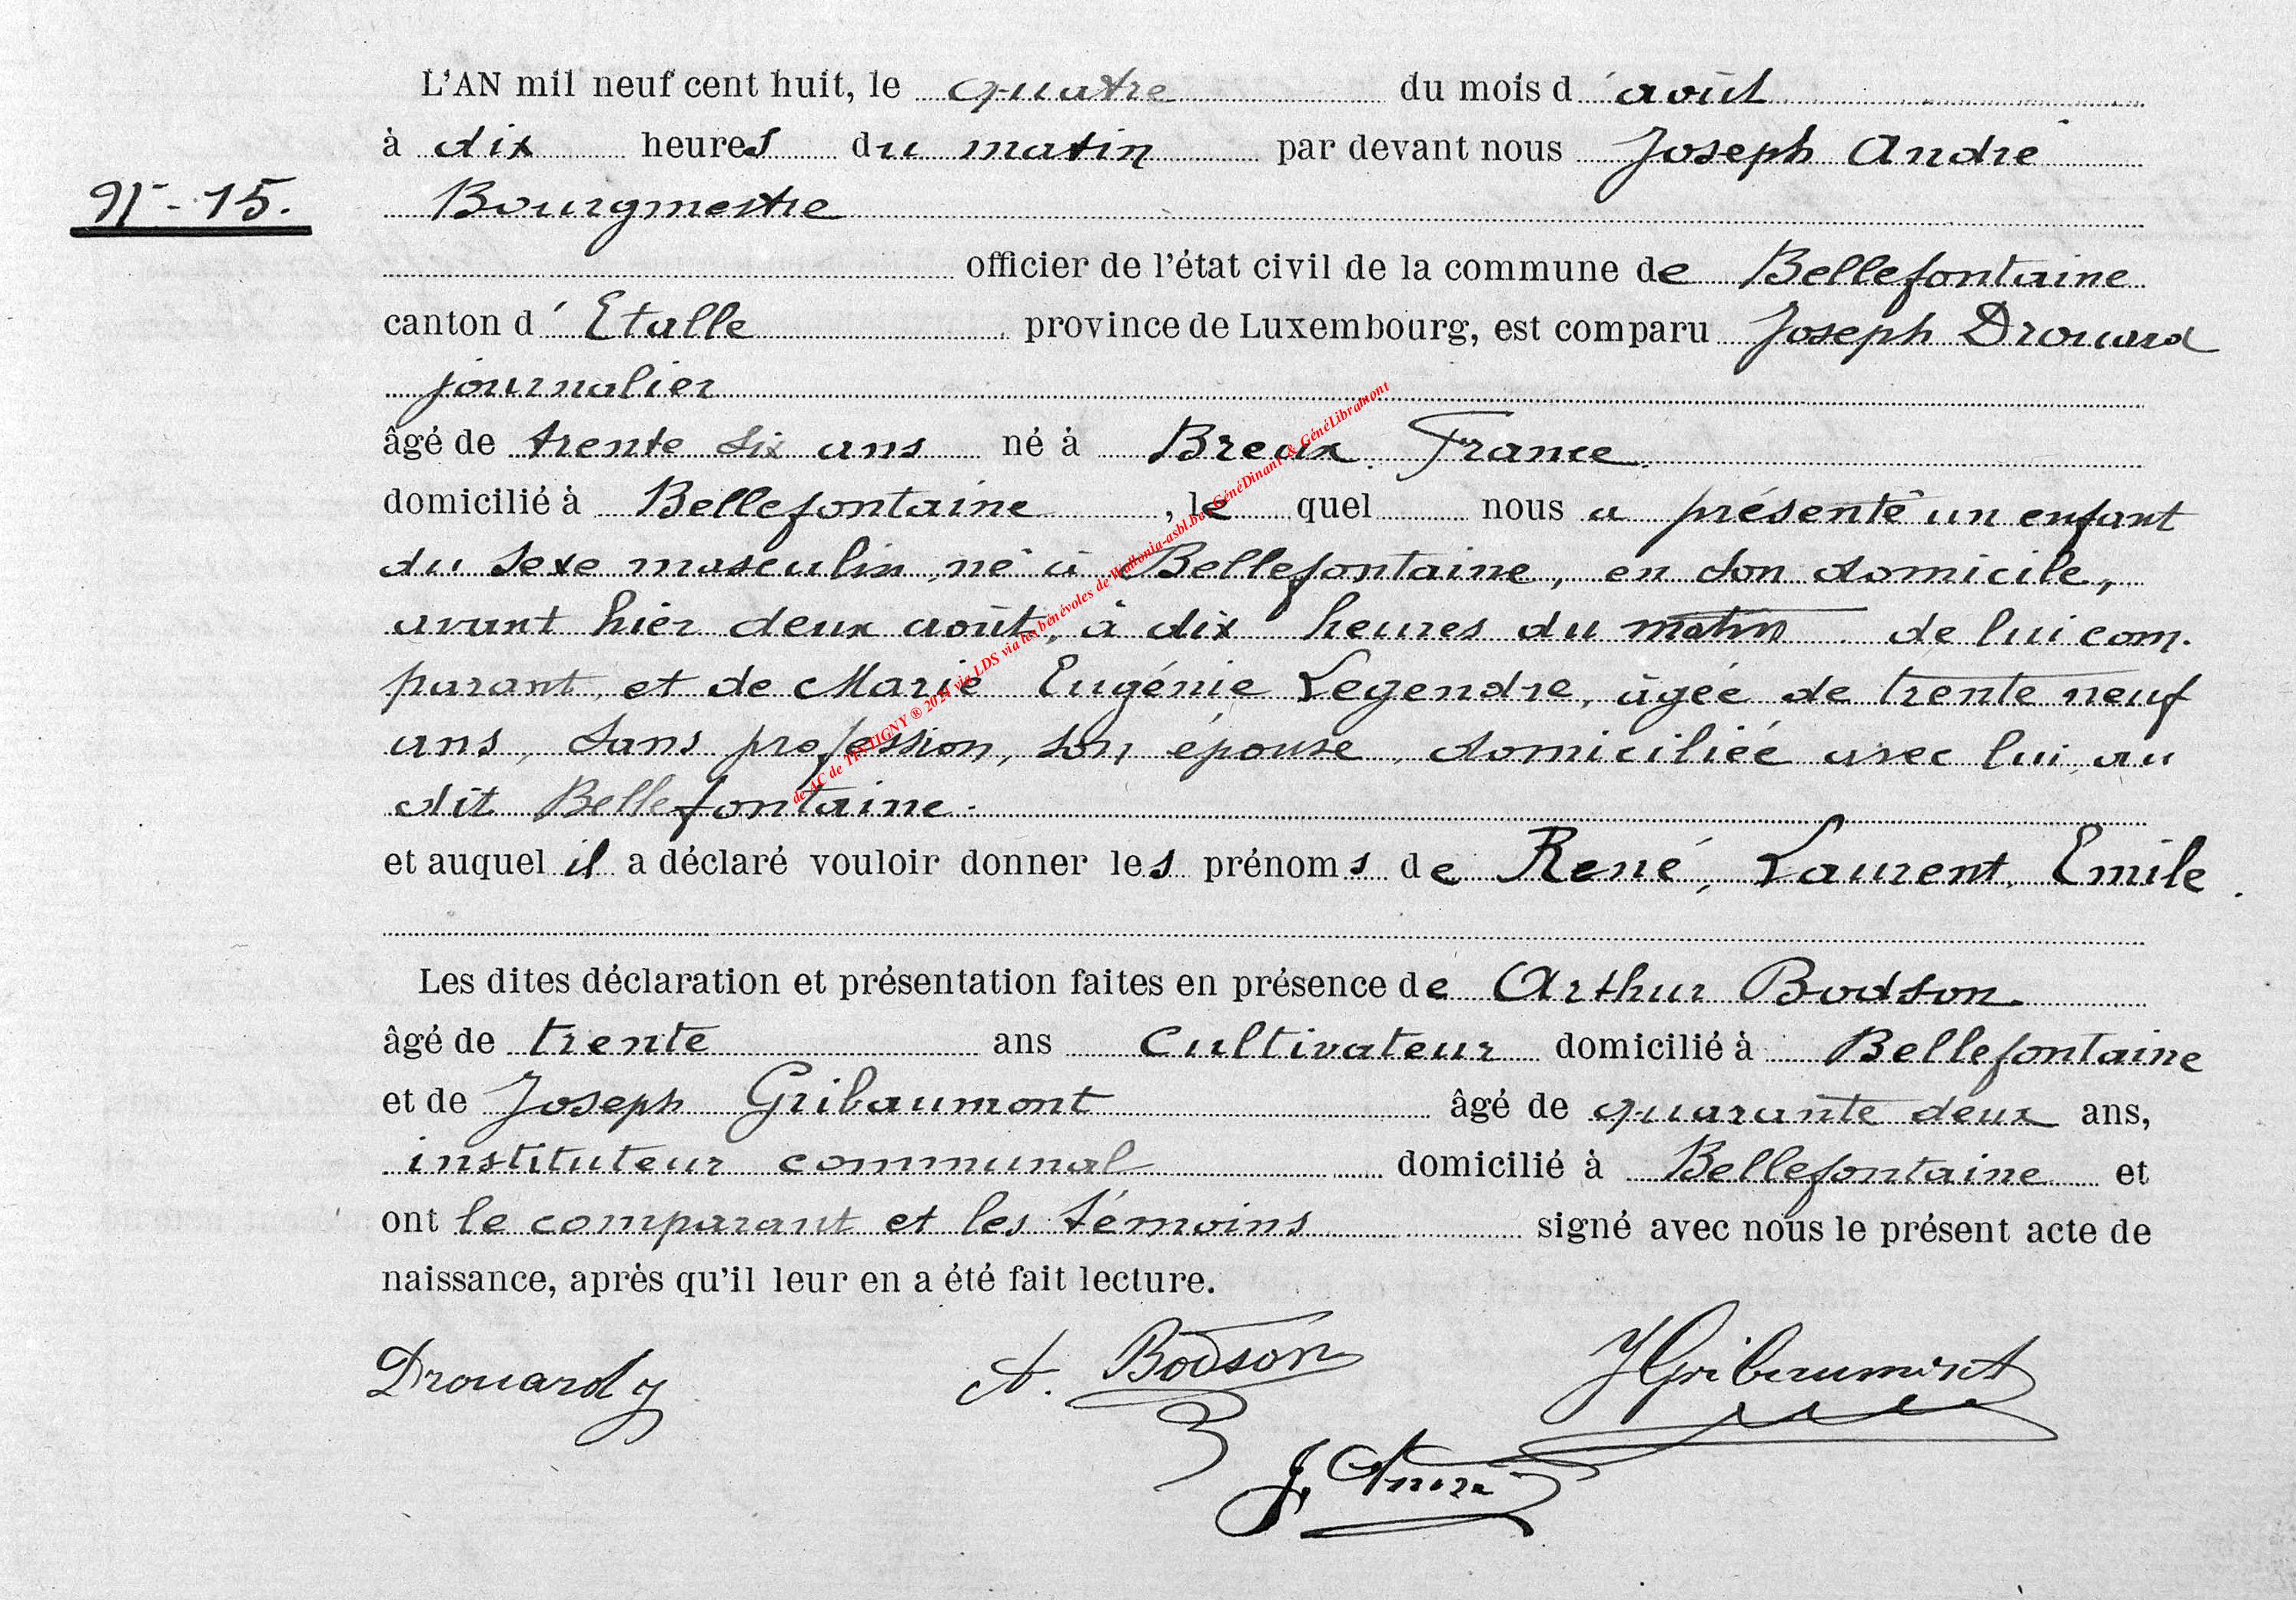 L'AN mil neuf cent huit, le quatre du mois d'août
à dix heures du matin par devant nous Joseph André
N° 15.
Bourgmestre
officier de l'état civil de la commune de Bellefontaine
canton d'Etalle province de Luxembourg, est comparu Joseph Drouard
journalier
âgé de trente six ans né à Breux France
domicilié à Bellefontaine, lequel nous a présenté un enfant
du sexe masculin, né à Bellefontaine, en son domicile,
avant hier deux août, à dix heures du matin de lui com.
parant, et de Marie Eugénie Legendre, âgée de trente neuf
ans, sans profession, son épouse, domiciliée avec lui, au
dit Bellefontaine.
et auquel il a déclaré vouloir donner les prénoms de René, Laurent, Emile.
Les dites déclaration et présentation faites en présence de Arthur Bodson
âgé de trente ans cultivateur domicilié à Bellefontaine
et de Joseph Gribaumont âgé de quarante deux ans,
instituteur communal domicilié à Bellefontaine et
ont le comparant et les témoins signé avec nous le présent acte de
naissance, après qu'il leur en a été fait lecture.
Drouard J
A. Bodson
J Gribaumont
J. André
de AC de TINTIGNY ® 2021 via LDS via les bénévoles de Wallonia-asbl.be, GénéDinant & GénéLibramont